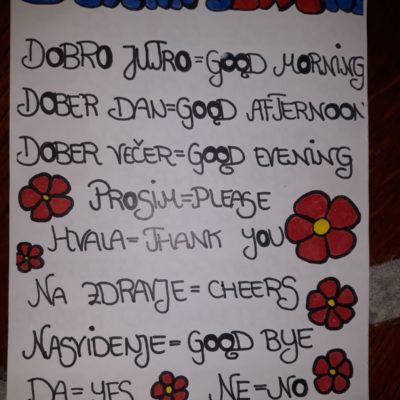 DOBRO JUTRO=GOOD MORNING
DOBER DAN=GOOD AFTERNOON
DOBER VEČER=GOOD EVENING
PROSIM=PLEASE
HVALA=THANK YOU
NA ZDRAVJE=CHEERS
NASVIDENJE=GOOD BYE
DA=YES NE=NO